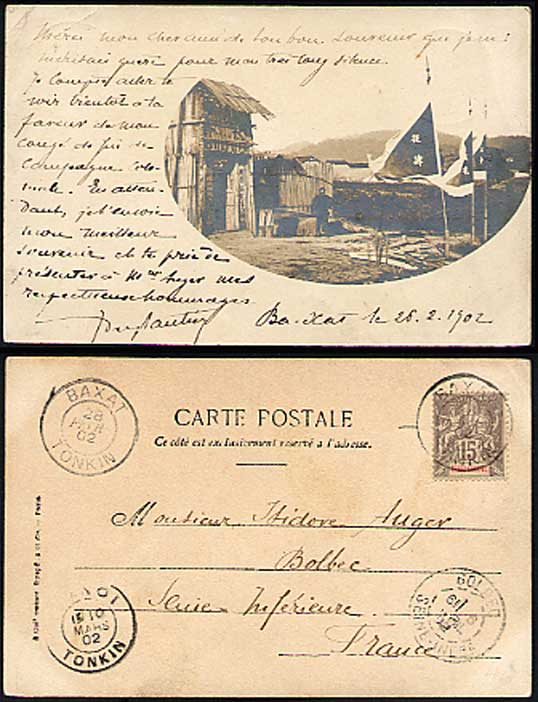 Merci mon cher ami de ton bon souvenir que je ne
méritais guère pour mon trop long silence.
Je compte aller te
voir bientôt à la
faveur de mon
congé de fin de
campagne
En atten-
dant, je t'envoie
mon meilleur
souvenir et te prie de
présenter à Mme Auger mes
respectueux hommages
Ba-Xat le 28.2.1902
BAXAT
28
FEVR
02
TONKIN
CARTE POSTALE
Ce côté est exclusivement reservé à l'adresse.
BAXAT
15
Monsieur Isidore Auger
Bolbec
Seine Inférieure
France
10
MARS
02
TONKIN
BOLBEC
SEINE-INFRE